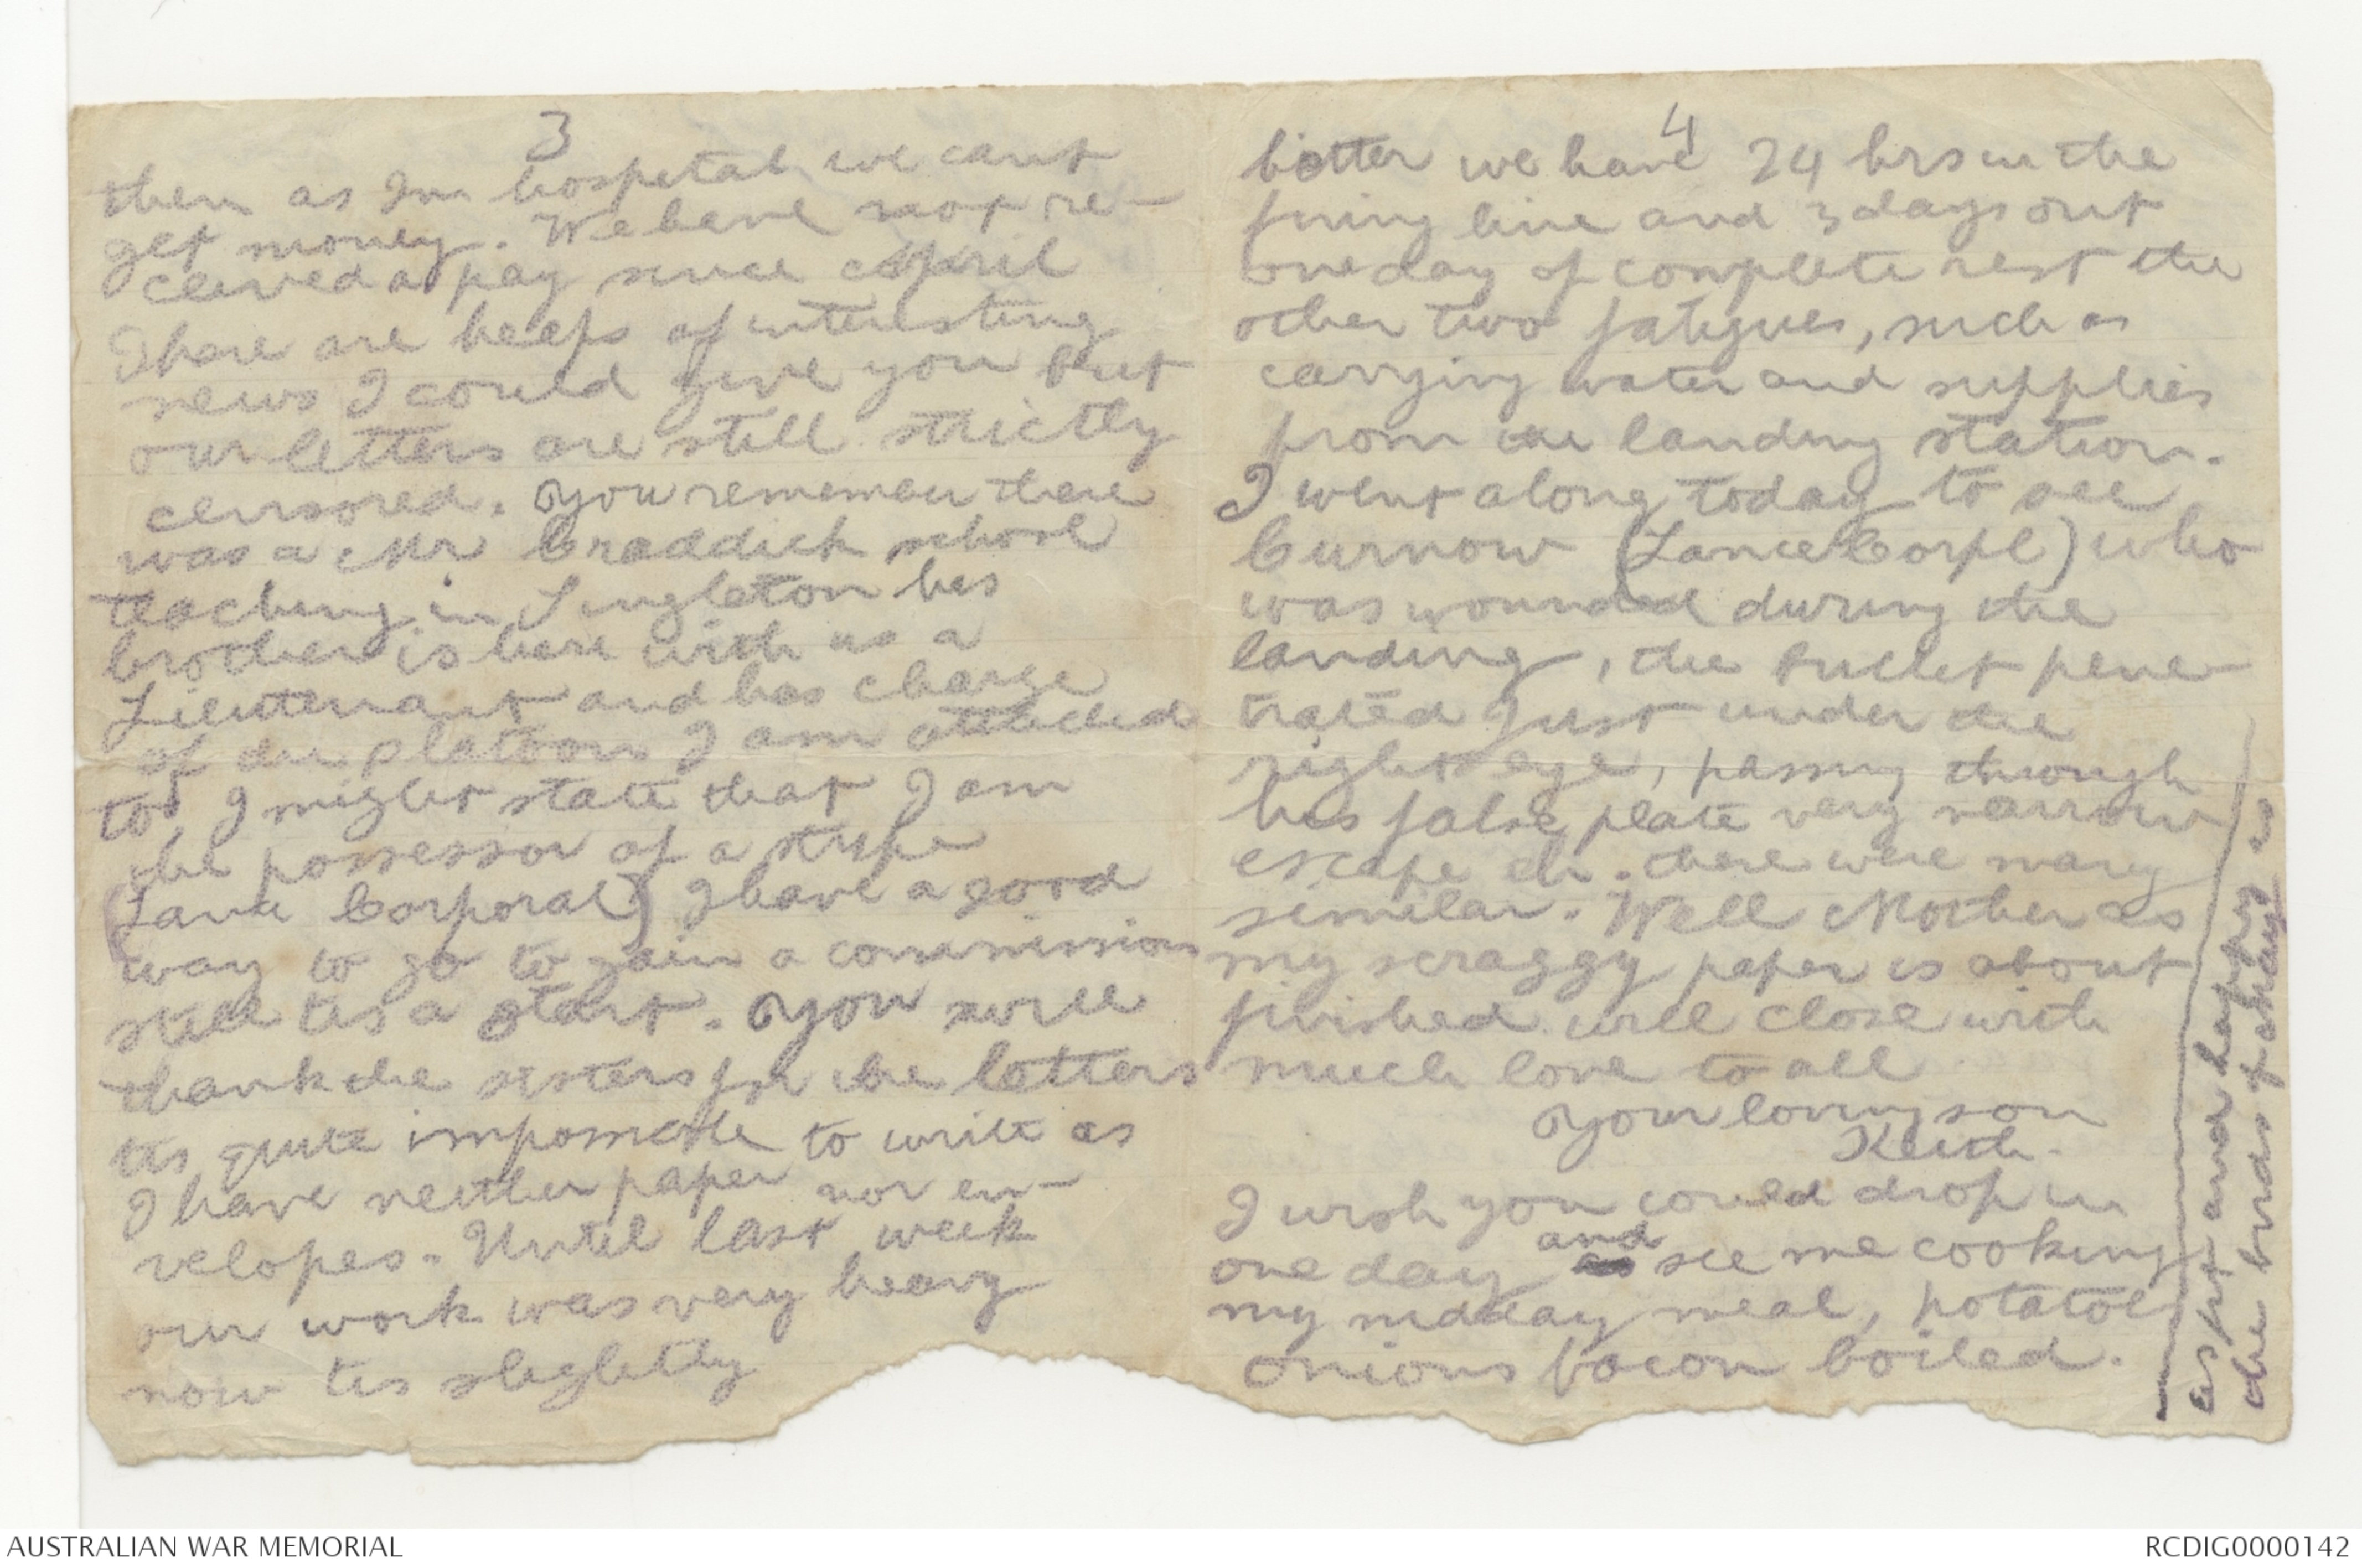 3
then as Im hospital, we cant
get money. We have not re-
ceived a pay since April
There are heaps of interesting
news I could give you but
our letters are still strictly
censored. You rememeu there
was a Mr Craddick school
teaching in Singleton his
brother is here with us a
Lieutenant and has charge
of the platoon I am attached
to I might state that I am
the possessor of a stripe
(Lance Corporal) I have a good
way to go to gain a commission
still tis a start. You will
thank the sisters for the letters
tis quite impossible to write as
I have neither paper nor en-
velopes. Until last week
our work was very heavy
now tis slightly
4
better we have 24 hrs in the
firing line and 3 days out
one day of complete rest the
other two fatigues, such as
carrying water and supplies
from the landing station.
I went along today to see
Curnow (Lance Corpl) who
was wounded during the
landing, the bullet pene-
trated just under the
right eye, passing through
his false plate very narrow
escape eh. there were many
similar. Well Mother as
my scraggy paper is about
finished will close with
much love to all
Your loving son
Keith.
I wish you could drop in
one day and see me cooking
my midday meal, potatoes
onions bacon boiled.